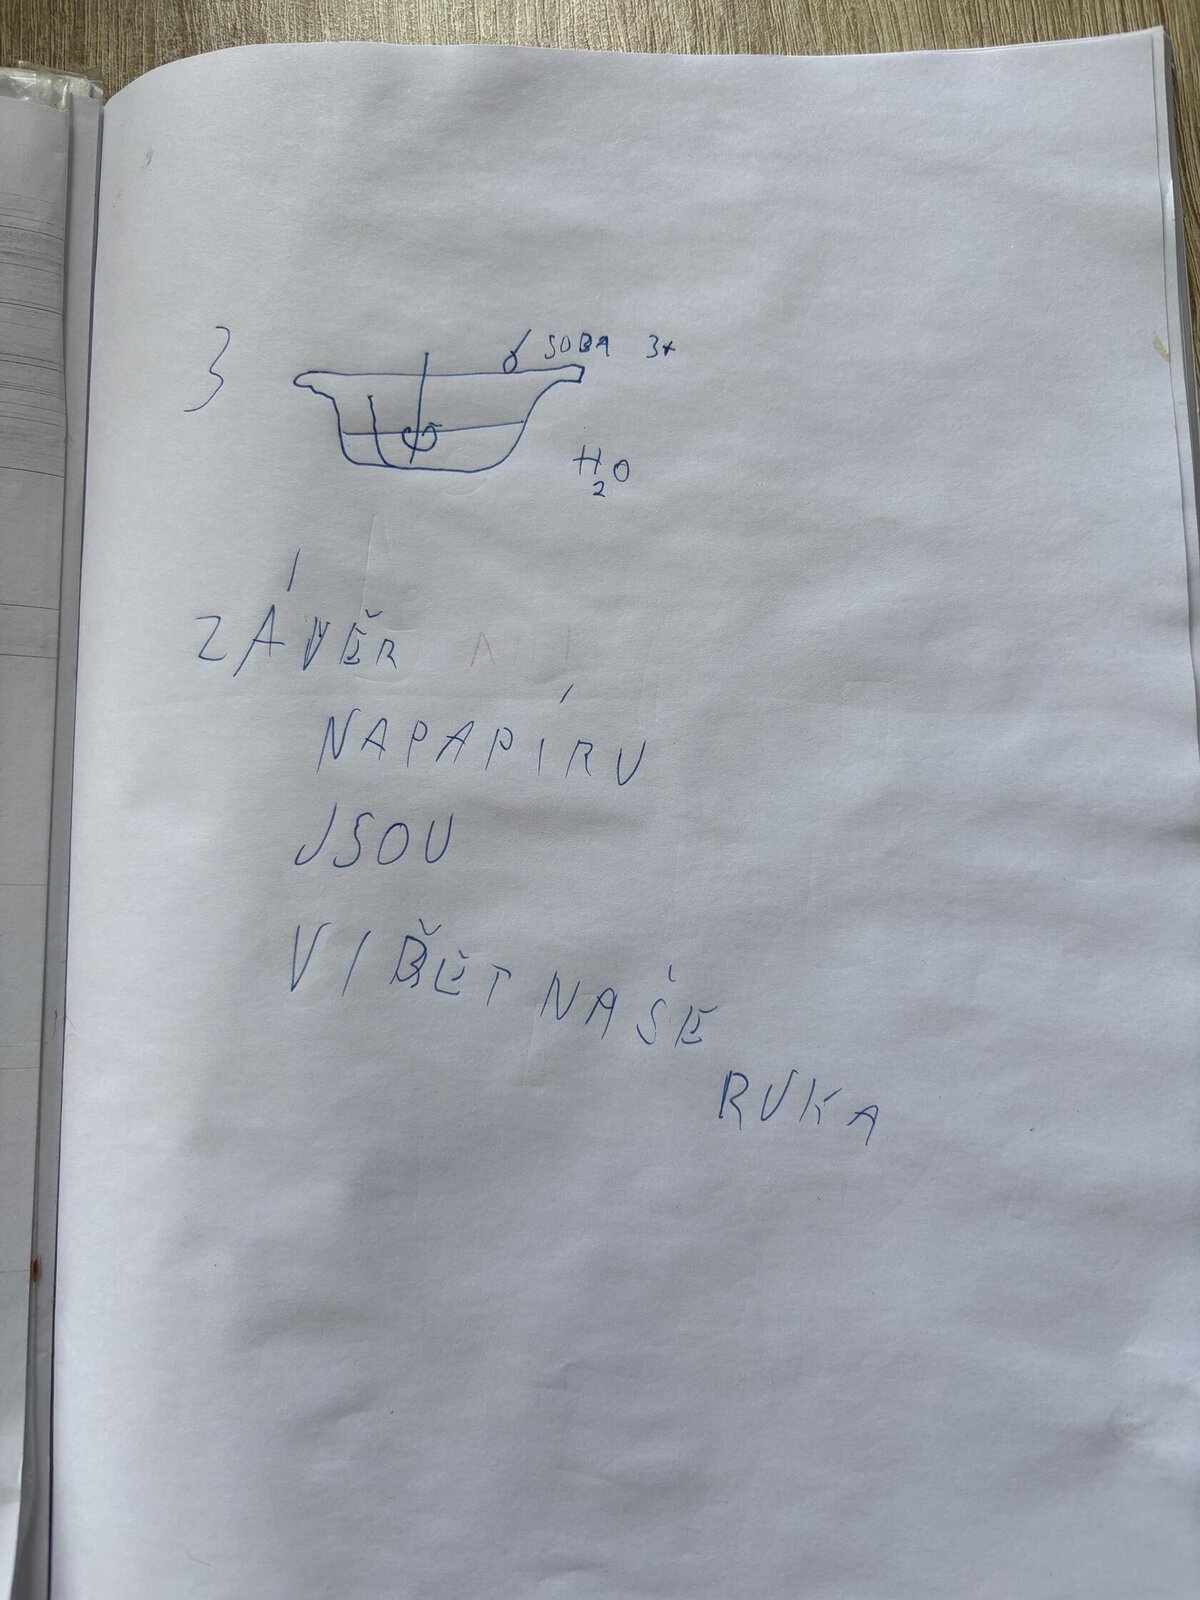 3
SODA 3x
H2O
ZÁVĚR
NAPAPÍRU
JSOU
VIĎĚT NAŠE
RUKA